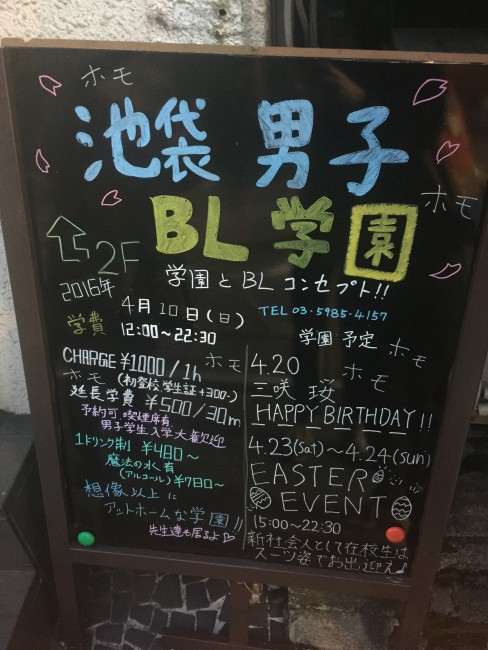 ホモ
池袋 男子
BL 学園
ホモ
2F
学園とBLコンセプト!!
2016年
4月10日(日)
TEL 03-5985-4157
学費
12:00~22:30
学園 予定
ホモ
CHARGE ¥1000/1h
ホモ
ホモ
(初登校学生証+300-)
延長学費 ¥500/30m
予約可.喫煙席有.
男子学生入学大歓迎
1ドリンク制 ¥480~
魔法の水有
(アルコール) ¥780~
想像以上に
アットホームな学園!!
先生達も居るよ♡
4.20
ホモ
三咲
HAPPY BIRTHDAY!!
4.23(Sat)~4.24(Sun)
EASTER
EVENT
15:00~22:30
新社会人として在校生は
スーツ姿でお出迎え♪